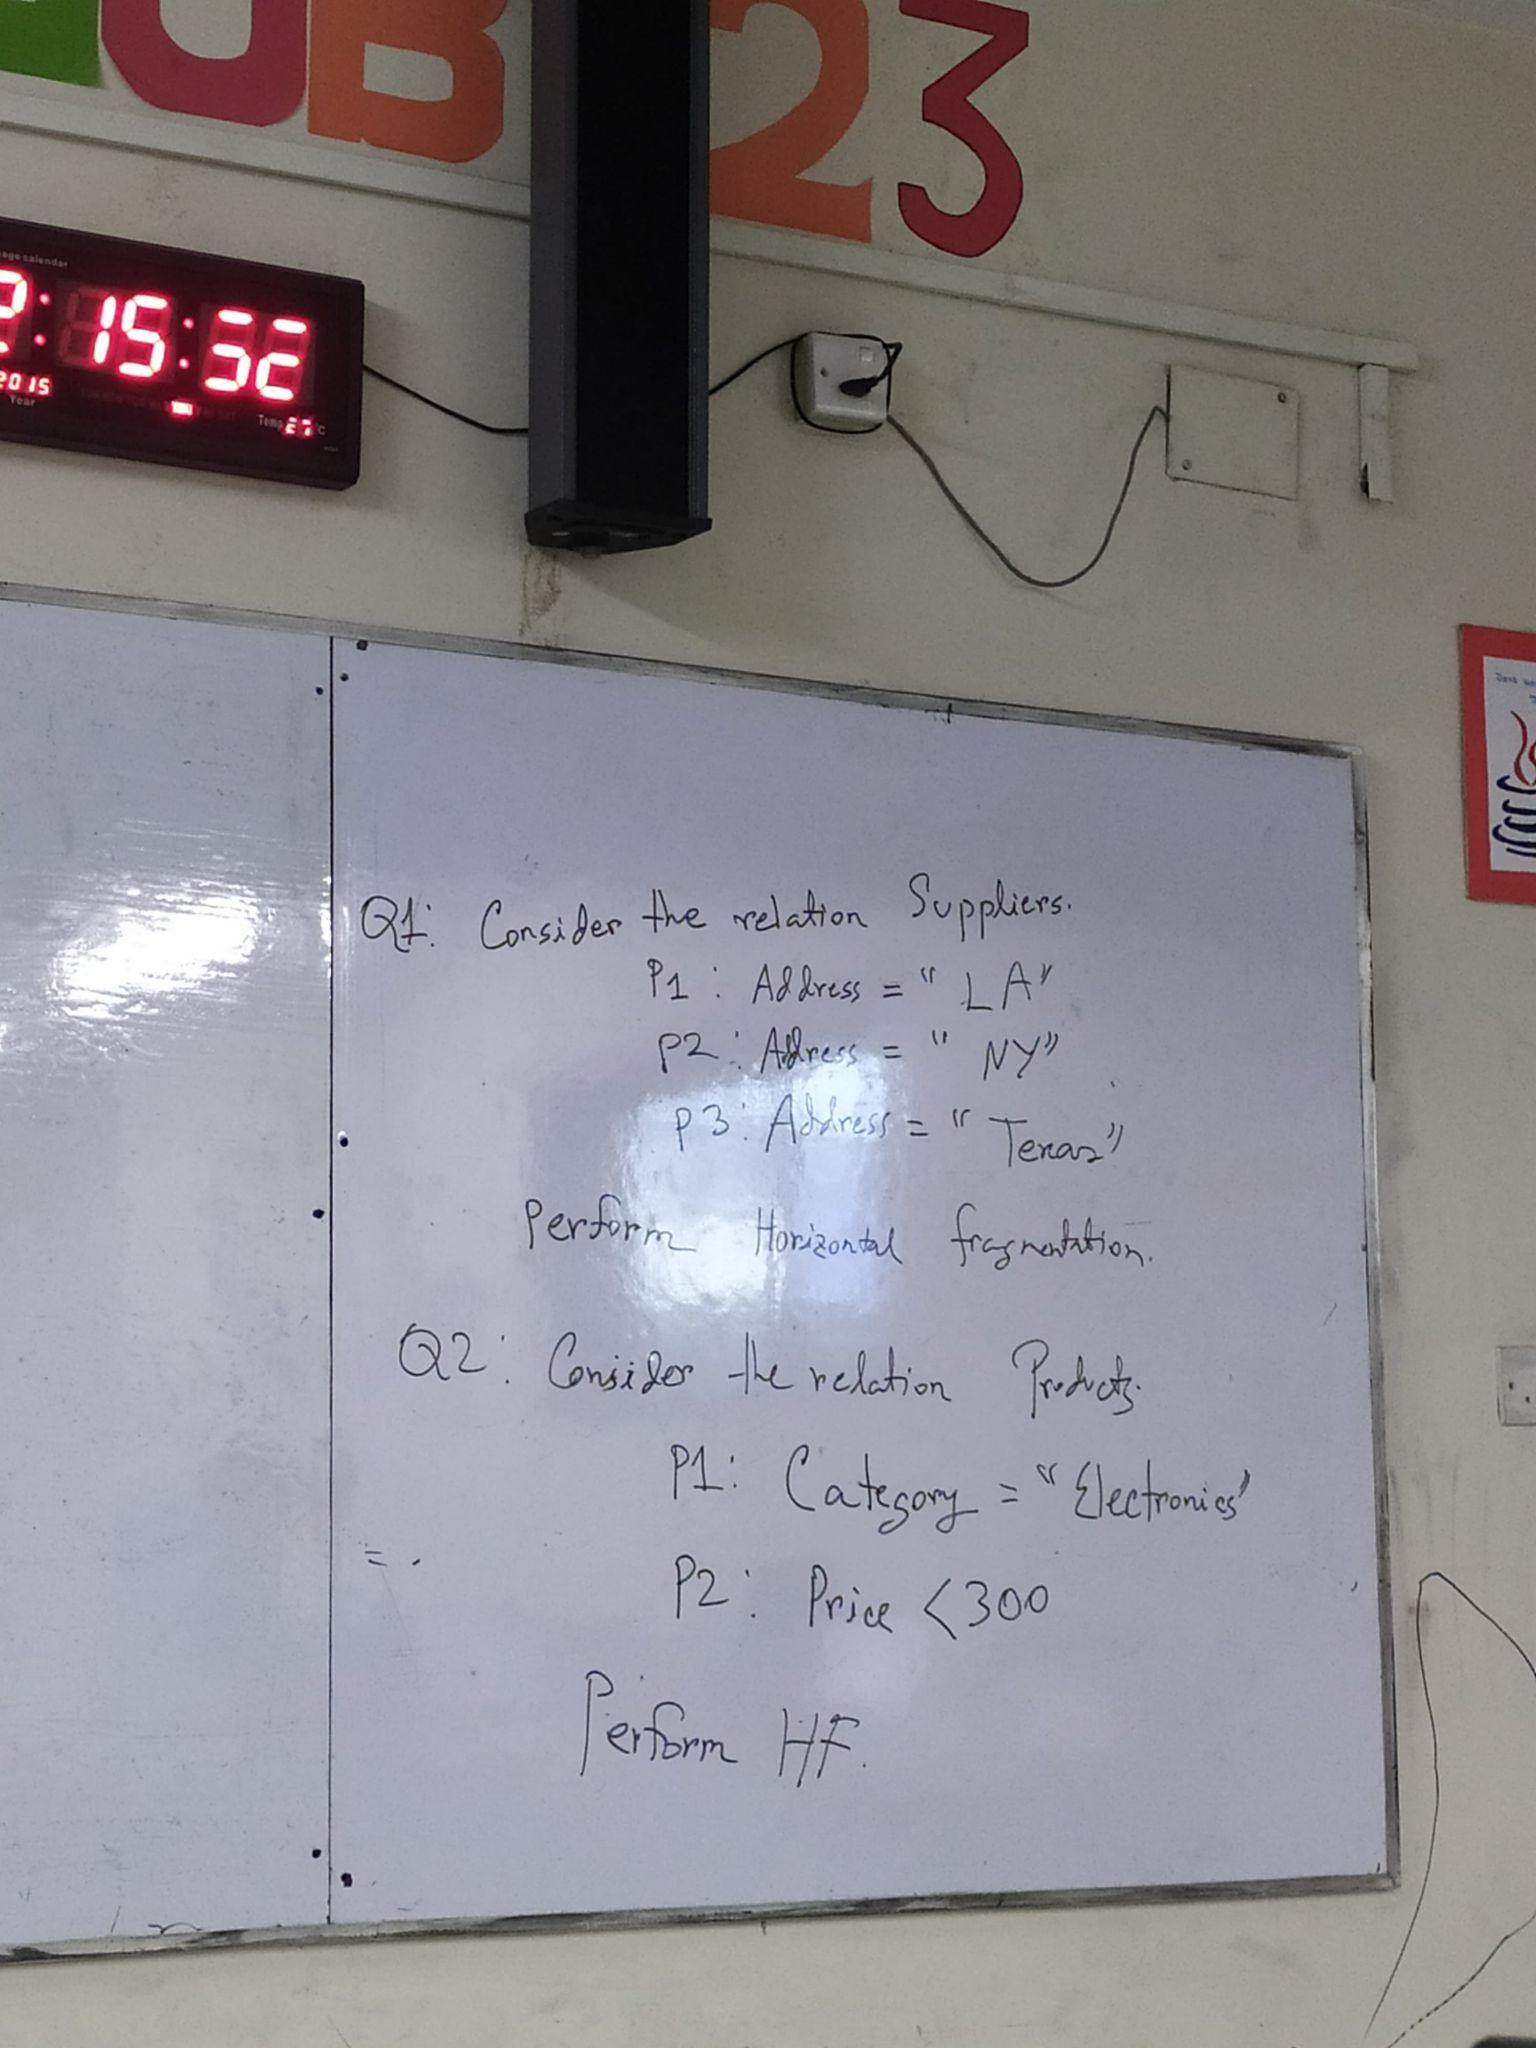 UB 23
age calendar
2:15:32
2015
Year
Temp 27 °C
Q1: Consider the relation Suppliers.
P1 : Address = "LA"
P2 : Address = "NY"
P3 : Address = "Texas"
Perform Horizontal fragmentation.
Q2 : Consider the relation Products.
P1: Category = "Electronics"
= .
P2 : Price < 300
Perform HF.